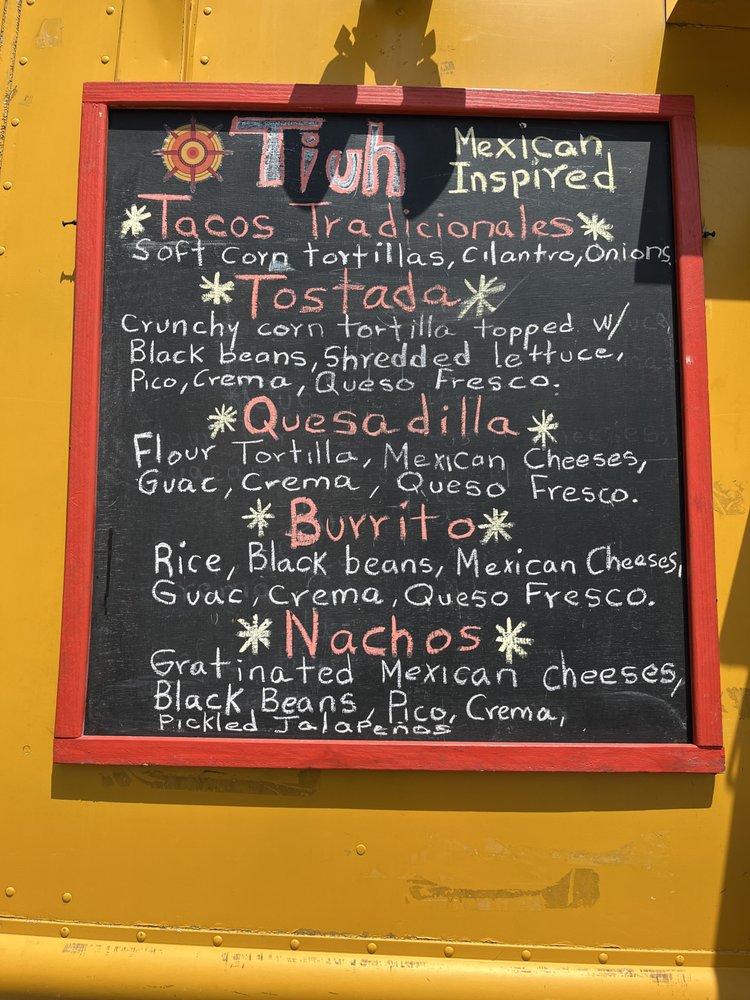 Tiuh
Mexican
Inspired
Tacos Tradicionales
Soft corn tortillas, Cilantro, Onions
Tostada
Crunchy corn tortilla topped w/
Black beans, Shredded lettuce,
Pico, Crema, Queso Fresco.
Quesadilla
Flour Tortilla, Mexican Cheeses,
Guac, Crema, Queso Fresco.
Burrito
Rice, Black beans, Mexican Cheeses,
Guac, Crema, Queso Fresco.
Nachos
Gratinated Mexican cheeses,
Black Beans, Pico, Crema,
Pickled Jalapeños